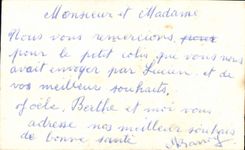 Monsieur et Madame
Nous vous remercions,
pour le petit colis, que vous nous
avait envoyer par Lucien. et de
vos meilleur souhaits.
Joële. Berthe et moi vous
adresse nos meilleur souhaits
de bonne santé